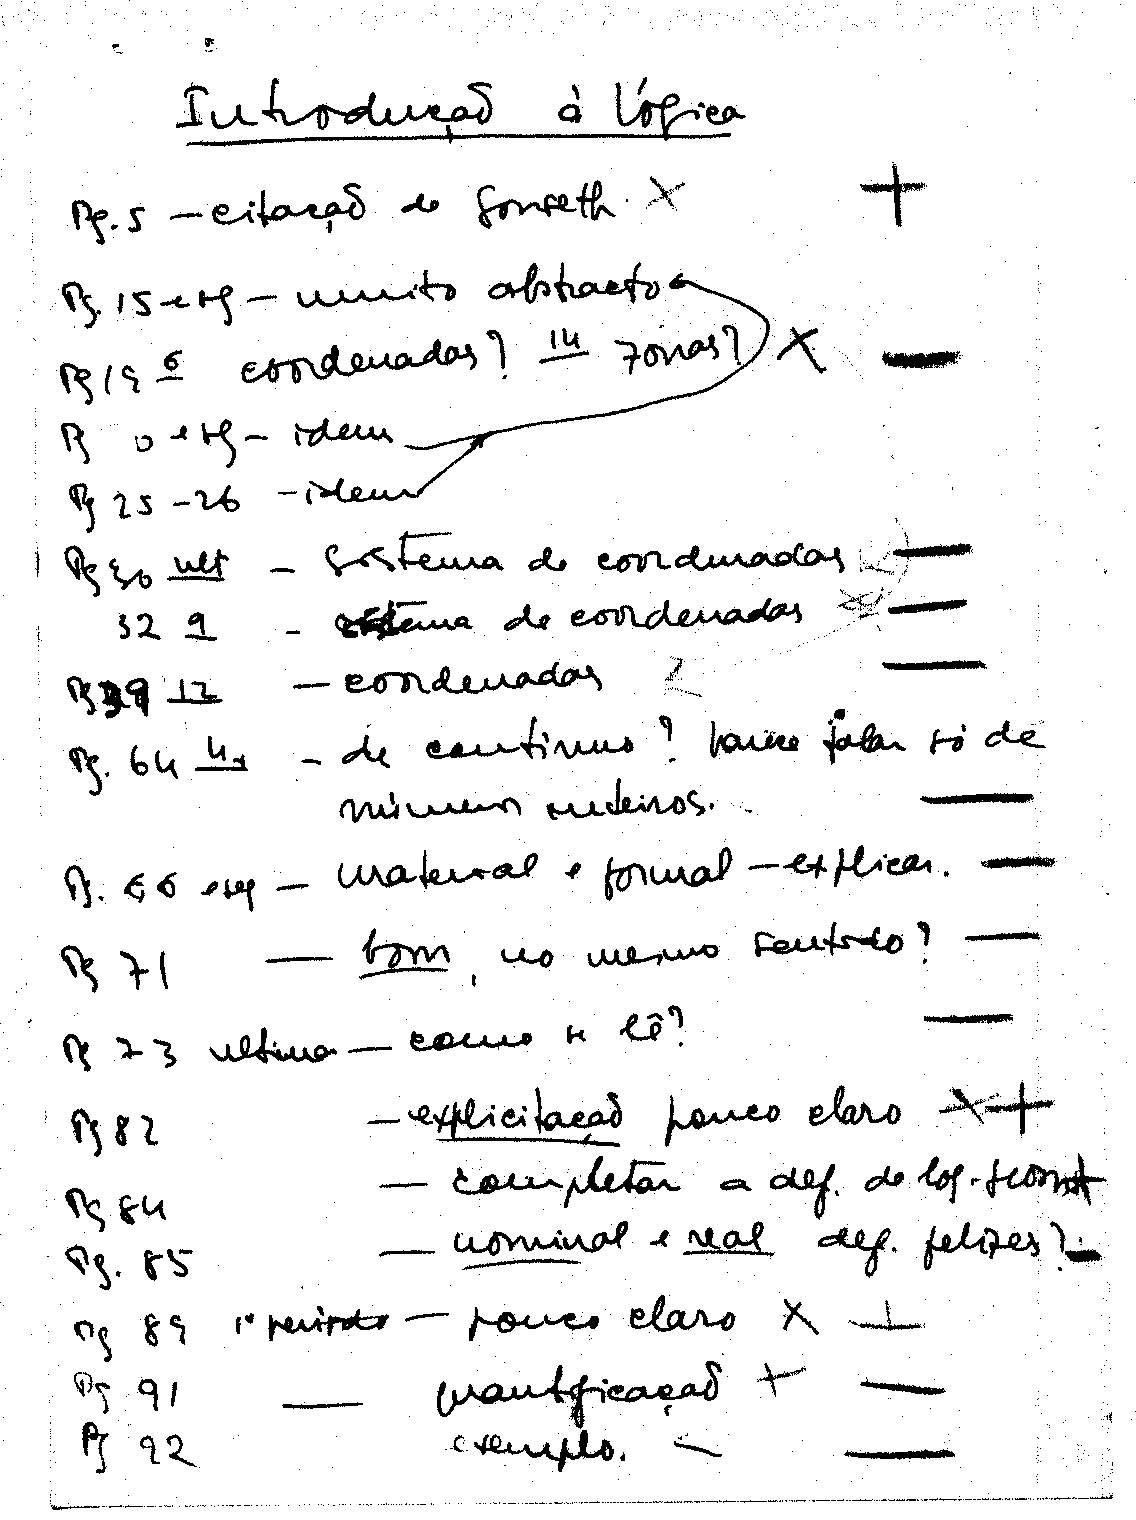 Introdução à lógica
Pg. 5 — citação de Gonseth. X +
Pg. 15 e sg — muito abstracto
Pg 19 6 coordenadas? 14 zonas? X —
Pg 0 e sg — idem
Pg 25-26 — idem
Pg 30 ult — sistema de coordenadas —
32 9 - sistema de coordenadas X —
Pg 39 12 — coordenadas —
Pg. 64 — de contínuo? parece falar só de
números inteiros. —
Pg. 66 e seg — material e formal — explicar. —
Pg 71 — bom, no mesmo sentido? —
Pg 73 ultima — como se lê? —
Pg 82 — explicitação pouco claro X +
Pg 84 — completar a def. de log.
Pg. 85 — nominal e real def. felizes? —
Pg 89 1º período — pouco claro X
Pg 91 — quantificação + —
Pg 92 exemplo. —